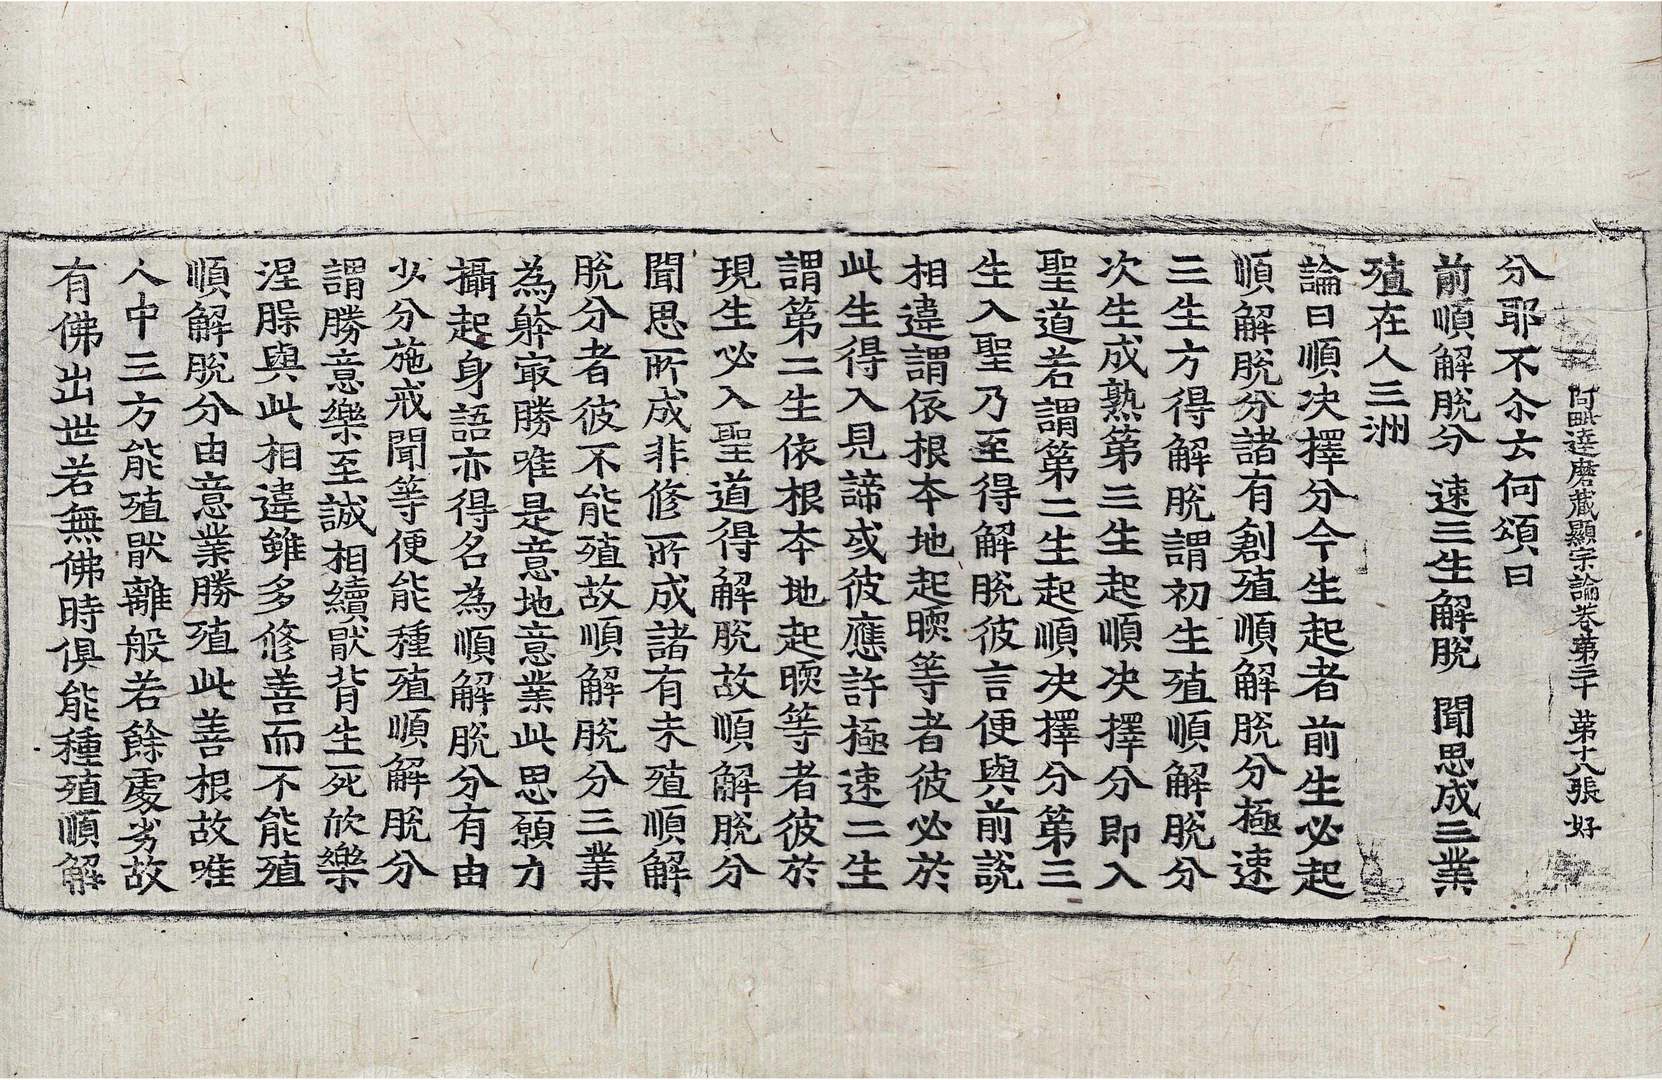 阿毗達磨藏顯宗論卷第三十 第十八張 好
分耶不尒云何頌曰
前順解脫分 速三生解脫 聞思成三業
殖在人三洲
論曰順決擇分今生起者前生必起
順解脫分諸有創殖順解脫分極速
三生方得解脫謂初生殖順解脫分
次生成熟第三生起順決擇分即入
聖道若謂第二生起順決擇分第三
生入聖乃至得解脫彼言便與前說
相違謂依根本地起暖等者彼必於
此生得入見諦或彼應許極速二生
謂第二生依根本地起暖等者彼於
現生必入聖道得解脫故順解脫分
聞思所成非修所成諸有未殖順解
脫分者彼不能殖故順解脫分三業
為躰㝡勝唯是意地意業此思願力
攝起身語亦得名為順解脫分有由
少分施戒聞等便能種殖順解脫分
謂勝意樂至誠相續猒背生死欣樂
涅槃與此相違雖多修善而不能殖
順解脫分由意業勝殖此善根故唯
人中三方能殖猒離般若餘處劣故
有佛出世若無佛時俱能種殖順解